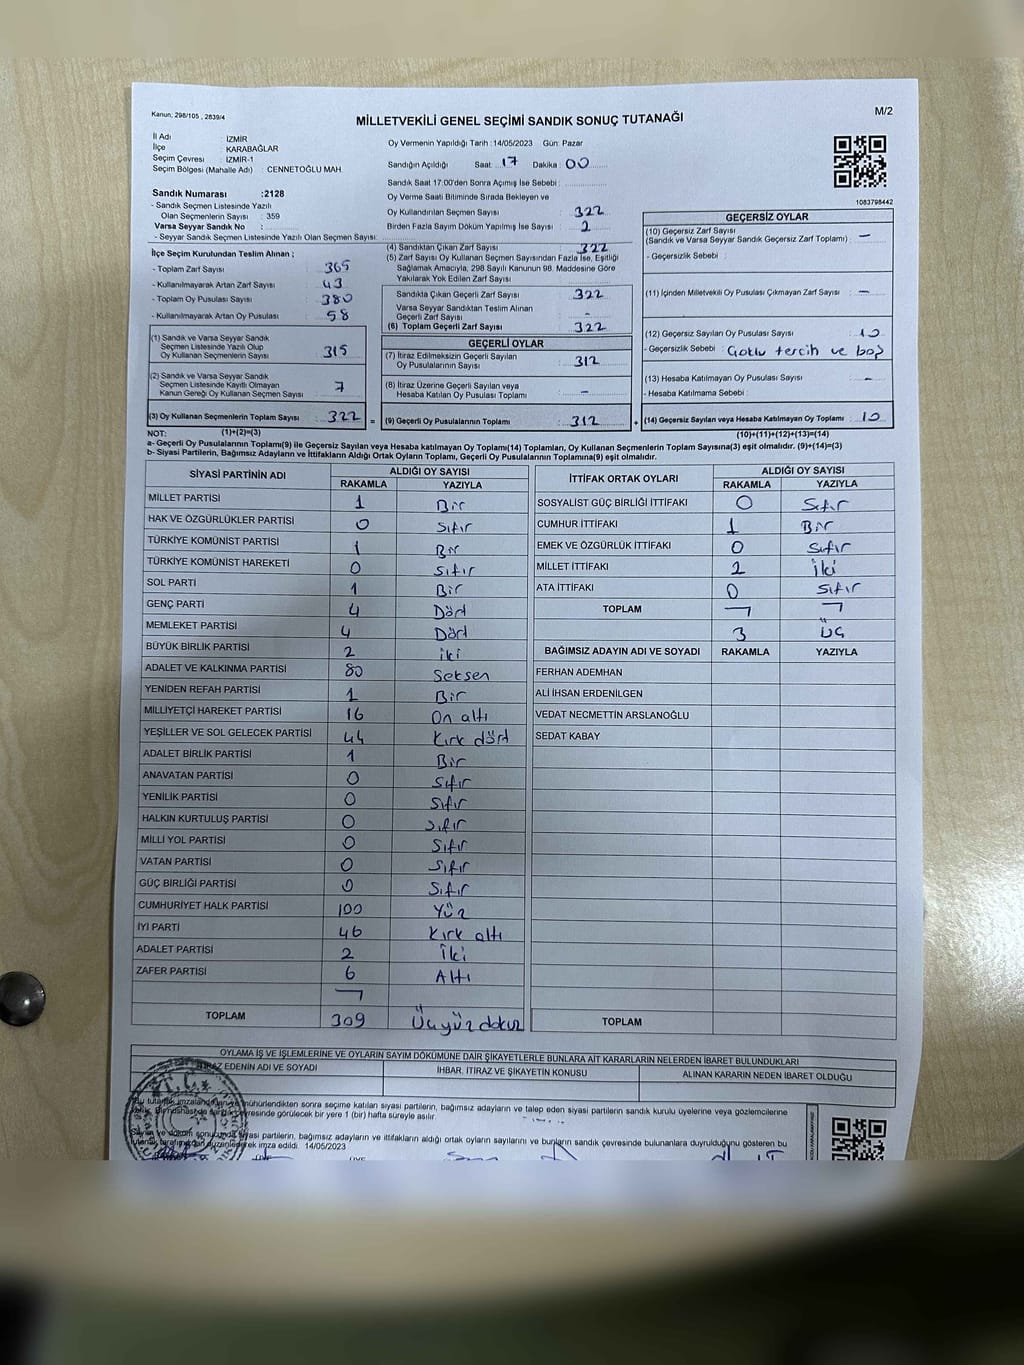 Kanun; 298/105 , 2839/4
MİLLETVEKİLİ GENEL SEÇİMİ SANDIK SONUÇ TUTANAĞI
M/2
İl Adı : İZMİR
İlçe : KARABAĞLAR
Seçim Çevresi : İZMİR-1
Seçim Bölgesi (Mahalle Adı) : CENNETOĞLU MAH.
Sandık Numarası :2128
- Sandık Seçmen Listesinde Yazılı
Olan Seçmenlerin Sayısı : 359
Varsa Seyyar Sandık No :
- Seyyar Sandık Seçmen Listesinde Yazılı Olan Seçmen Sayısı:
İlçe Seçim Kurulundan Teslim Alınan ;
- Toplam Zarf Sayısı : 365
- Kullanılmayarak Artan Zarf Sayısı : 43
- Toplam Oy Pusulası Sayısı : 380
- Kullanılmayarak Artan Oy Pusulası : 58
(1) Sandık ve Varsa Seyyar Sandık
Seçmen Listesinde Yazılı Olup
Oy Kullanan Seçmenlerin Sayısı : 315
(2) Sandık ve Varsa Seyyar Sandık
Seçmen Listesinde Kayıtlı Olmayan
Kanun Gereği Oy Kullanan Seçmen Sayısı : 7
(3) Oy Kullanan Seçmenlerin Toplam Sayısı : 322 =
Oy Vermenin Yapıldığı Tarih : 14/05/2023 Gün: Pazar
Sandığın Açıldığı Saat : 17 Dakika : 00
Sandık Saat 17:00'den Sonra Açımış İse Sebebi :
Oy Verme Saati Bitiminde Sırada Bekleyen ve
Oy Kullandırılan Seçmen Sayısı : 322
Birden Fazla Sayım Döküm Yapılmış İse Sayısı : 2
(4) Sandıktan Çıkan Zarf Sayısı : 322
(5) Zarf Sayısı Oy Kullanan Seçmen Sayısından Fazla İse, Eşitliği
Sağlamak Amacıyla, 298 Sayılı Kanunun 98. Maddesine Göre
Yakılarak Yok Edilen Zarf Sayısı :
Sandıkta Çıkan Geçerli Zarf Sayısı : 322
Varsa Seyyar Sandıktan Teslim Alınan
Geçerli Zarf Sayısı : -
(6) Toplam Geçerli Zarf Sayısı : 322
GEÇERLİ OYLAR
(7) İtiraz Edilmeksizin Geçerli Sayılan
Oy Pusulalarının Sayısı : 312
(8) İtiraz Üzerine Geçerli Sayılan veya
Hesaba Katılan Oy Pusulası Toplamı : -
(9) Geçerli Oy Pusulalarının Toplamı : 312 +
1083798442
GEÇERSİZ OYLAR
(10) Geçersiz Zarf Sayısı
(Sandık ve Varsa Seyyar Sandık Geçersiz Zarf Toplamı) : -
- Geçersizlik Sebebi :
(11) İçinden Milletvekili Oy Pusulası Çıkmayan Zarf Sayısı : -
(12) Geçersiz Sayılan Oy Pusulası Sayısı : 10
- Geçersizlik Sebebi : Çoklu tercih ve boş
(13) Hesaba Katılmayan Oy Pusulası Sayısı : -
- Hesaba Katılmama Sebebi :
(14) Geçersiz Sayılan veya Hesaba Katılmayan Oy Toplamı : 10
NOT: (1)+(2)=(3) (10)+(11)+(12)+(13)=(14)
a- Geçerli Oy Pusulalarının Toplamı(9) ile Geçersiz Sayılan veya Hesaba katılmayan Oy Toplamı(14) Toplamları, Oy Kullanan Seçmenlerin Toplam Sayısına(3) eşit olmalıdır. (9)+(14)=(3)
b- Siyasi Partilerin, Bağımsız Adayların ve İttifakların Aldığı Ortak Oyların Toplamı, Geçerli Oy Pusulalarının Toplamına(9) eşit olmalıdır.
SİYASİ PARTİNİN ADI ALDIĞI OY SAYISI
RAKAMLA YAZIYLA
MİLLET PARTİSİ 1 Bir
HAK VE ÖZGÜRLÜKLER PARTİSİ 0 Sıfır
TÜRKİYE KOMÜNİST PARTİSİ 1 Bir
TÜRKİYE KOMÜNİST HAREKETİ 0 Sıfır
SOL PARTİ 1 Bir
GENÇ PARTİ 4 Dört
MEMLEKET PARTİSİ 4 Dört
BÜYÜK BİRLİK PARTİSİ 2 iki
ADALET VE KALKINMA PARTİSİ 80 Seksen
YENİDEN REFAH PARTİSİ 1 Bir
MİLLİYETÇİ HAREKET PARTİSİ 16 On altı
YEŞİLLER VE SOL GELECEK PARTİSİ 44 Kırk dört
ADALET BİRLİK PARTİSİ 1 Bir
ANAVATAN PARTİSİ 0 Sıfır
YENİLİK PARTİSİ 0 Sıfır
HALKIN KURTULUŞ PARTİSİ 0 Sıfır
MİLLİ YOL PARTİSİ 0 Sıfır
VATAN PARTİSİ 0 Sıfır
GÜÇ BİRLİĞİ PARTİSİ 0 Sıfır
CUMHURİYET HALK PARTİSİ 100 Yüz
İYİ PARTİ 46 Kırk altı
ADALET PARTİSİ 2 İki
ZAFER PARTİSİ 6 Altı
TOPLAM 309 Üçyüz dokuz
İTTİFAK ORTAK OYLARI ALDIĞI OY SAYISI
RAKAMLA YAZIYLA
SOSYALİST GÜÇ BİRLİĞİ İTTİFAKI 0 Sıfır
CUMHUR İTTİFAKI 1 Bir
EMEK VE ÖZGÜRLÜK İTTİFAKI 0 Sıfır
MİLLET İTTİFAKI 2 İki
ATA İTTİFAKI 0 Sıfır
TOPLAM
3 Üç
BAĞIMSIZ ADAYIN ADI VE SOYADI RAKAMLA YAZIYLA
FERHAN ADEMHAN
ALİ İHSAN ERDENİLGEN
VEDAT NECMETTİN ARSLANOĞLU
SEDAT KABAY
TOPLAM
OYLAMA İŞ VE İŞLEMLERİNE VE OYLARIN SAYIM DÖKÜMÜNE DAİR ŞİKAYETLERLE BUNLARA AİT KARARLARIN NELERDEN İBARET BULUNDUKLARI
İTİRAZ EDENİN ADI VE SOYADI İHBAR, İTİRAZ VE ŞİKAYETİN KONUSU ALINAN KARARIN NEDEN İBARET OLDUĞU
Bu tutanak imzalandıktan ve mühürlendikten sonra seçime katılan siyasi partilerin, bağımsız adayların ve talep eden siyasi partilerin sandık kurulu üyelerine veya gözlemcilerine
Bir nüshası de sandık çevresinde görülecek bir yere 1 (bir) hafta süreyle asılır.
Sayım ve döküm sonucunda siyasi partilerin, bağımsız adayların ve ittifakların aldığı ortak oyların sayılarını ve bunların sandık çevresinde bulunanlara duyrulduğunu gösteren bu
tutanak tarafımızdan düzenlenerek imza edildi. 14/05/2023
ÜYE ÜYE